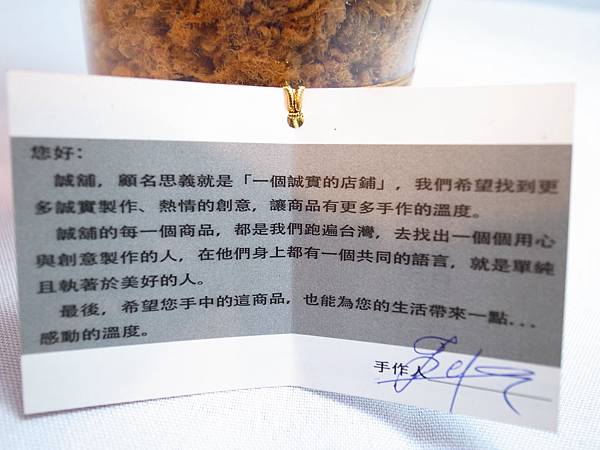 您好：
誠舖，顧名思義就是「一個誠實的店鋪」，我們希望找到更
多誠實製作、熱情的創意，讓商品有更多手作的溫度。
誠舖的每一個商品，都是我們跑遍台灣，去找出一個個用心
與創意製作的人，在他們身上都有一個共同的語言，就是單純
且執著於美好的人。
最後，希望您手中的這商品，也能為您的生活帶來一點...
感動的溫度。
手作人